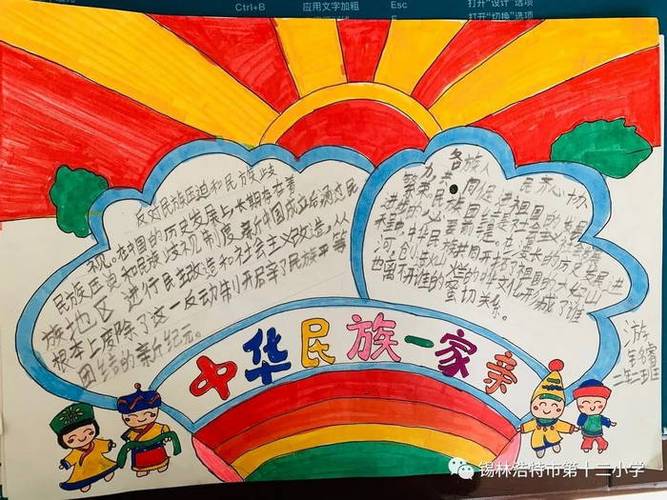 Ctrl+B 应用文字加粗 Esc 打开“设计”选项
打开“切换”选项
反对民族压迫和民族歧
视。在中国的历史发展上,长期存在着
民族压迫和民族歧视制度,新中国成立后,通过民
族地区进行民主改造和社会主义改造,从
根本上废除了这一反动制开启了民族平等
团结的新纪元。
各族人民齐心协
力,共同促进祖国的发展
繁荣
在漫长的历史发展进
程中,中华民族共同开拓了祖国的大好山
河,创造了文化形成了谁
也离不开谁的密切关系。
中华民族一家亲
游
二年二班
锡林浩特市第十二小学